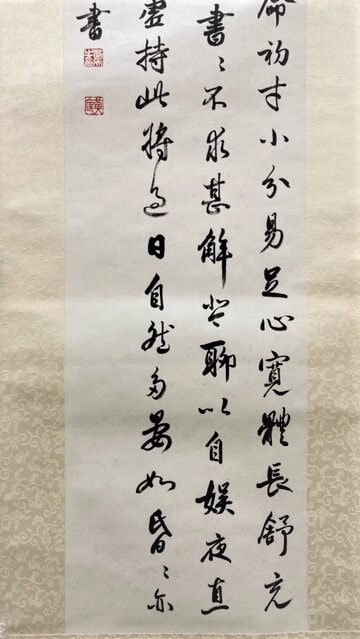 命初才小分易足心寬體長舒充
書〻不求甚解琴聊以自娛夜直
虛持此將過日自然多晏如昏〻亦
書